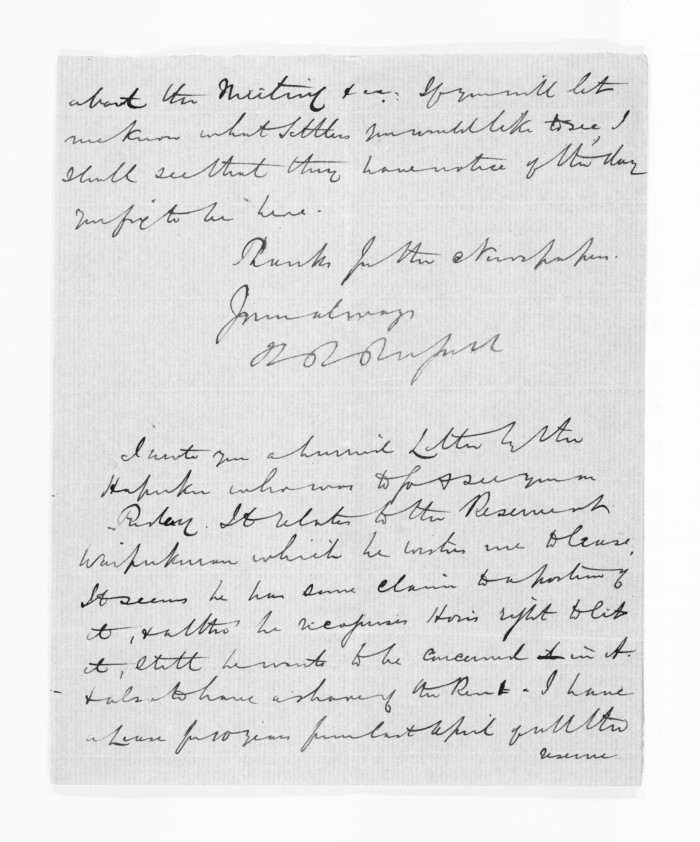 about the Meeting &c. If you will let
me know what Settlers you would like to see, I
shall see that they have notice of the day
you fix to be here.
Thanks for the Newspaper.
Yours always
I wrote you a hurried Letter by the
Hapuku who was to go & see you on
Friday. It relates to the Reserve at
Waipukurau which he wishes me to lease.
It seems he has some claim to a portion of
it, & altho' he recognises Hori's right to let
it, still he wants to be concerned in it
& also to have a share of the Rent - I have
a Lease for 10 years from last April of all the
reserve